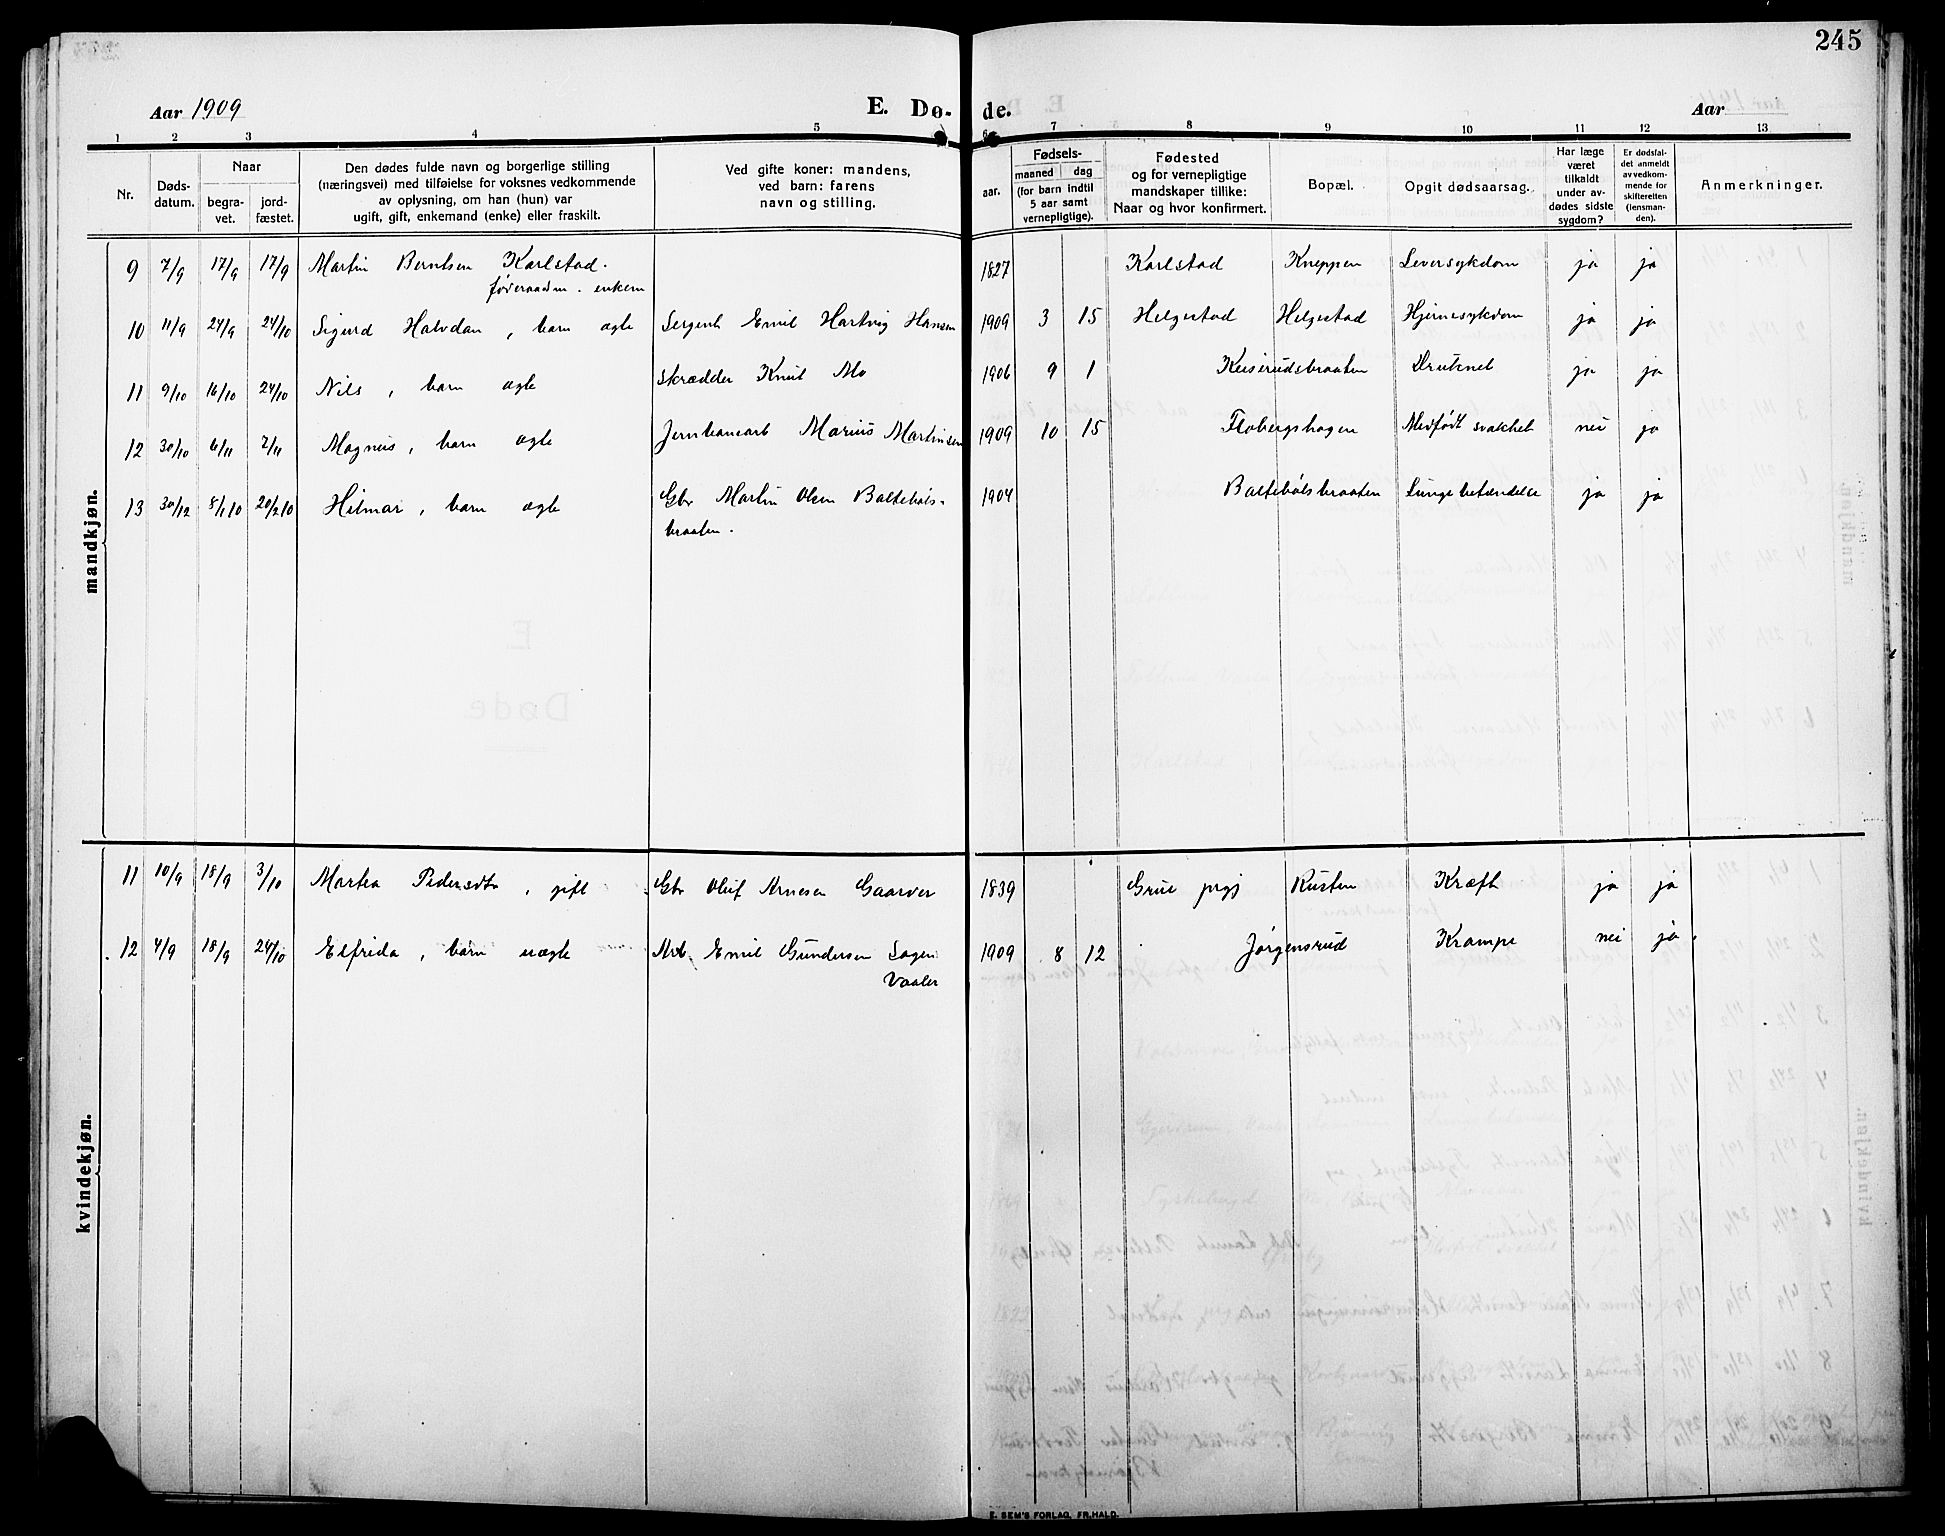 245
Aar 1909
E. Dø-
de.
Aar
1 2 3 4 5 6 7 8 9 10 11 12 13
Nr.
Døds-
datum.
Naar
begra-
vet.
jord-
fæstet.
Den dødes fulde navn og borgerlige stilling
(næringsvei) med tilføielse for voksnes vedkommende
av oplysning, om han (hun) var
ugift, gift, enkemand (enke) eller fraskilt.
Ved gifte koner: mandens,
ved barn: farens
navn og stilling.
aar.
Fødsels-
maaned dag
(for barn indtil
5 aar samt
vernepligtige).
Fødested
og for vernepligtige
mandskaper tillike:
Naar og hvor konfirmert.
Bopæl.
Opgit dødsaarsag.
Har læge
været
tilkaldt
under av-
dødes sidste
sygdom?
Er dødsfal-
det anmeldt
av vedkom-
mende for
skifteretten
(lensman-
den).
Anmerkninger.
mandkjøn.
9 7/9 17/9 17/9 Martin Berntsen Karlstad. 1827 Karlstad Kneppen Leversykdom ja ja
føderaadm. enkem
10 11/9 24/9 24/10 Sigurd Halvdan, barn ægte Sergent Emil Hartvig Hansen 1909 3 15 Helgestad Helgestad Hjernesykdom ja ja
11 9/10 16/10 24/10 Nils, barn ægte Skrædder Knut Mo 1906 9 1 Keiserudsbraaten Druknet ja ja
12 30/10 6/11 7/11 Magnus, barn ægte Jernbanearb Marius Martinsen 1909 10 15 Flobergshagen Medfødt svakhet nei ja
13 30/12 8/1 10 20/2 10 Hilmar, barn ægte Gbr Martin Olsen Baltebøls- 1904 Baltebølsbraaten Lungebetændelse ja ja
braaten.
kvindekjøn.
11 10/9 18/9 3/10 Martea Pedersdtr, gift Gbr Oluf Arnesen Gaarder 1839 Grue prgj Rusten Kræft ja ja
12 4/9 18/9 24/10 Elfrida, barn uægte Arb. Emil Gundersen Sagen 1909 8 12 Jørgensrud Krampe nei ja
Vaaler
E. SEM'S FORLAG, FR.HALD.